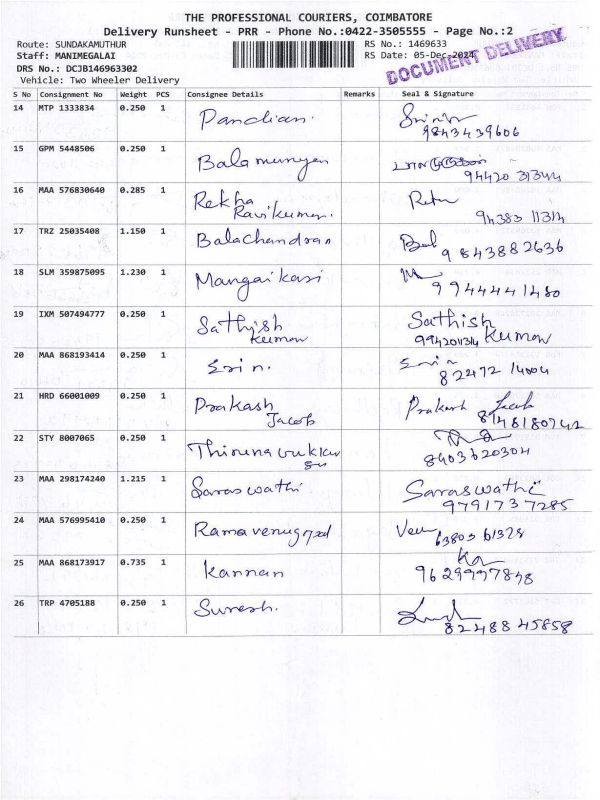 THE PROFESSIONAL COURIERS, COIMBATORE
Delivery Runsheet - PRR - Phone No.:0422-3505555 - Page No.:2
Route: SUNDAKAMUTHUR RS No.: 1469633
Staff: MANIMEGALAI RS Date: 05-Dec-2024
DRS No.: DCJB146963302
DOCUMENT DELIVERY
Vehicle: Two Wheeler Delivery
S No Consignment No Weight PCS Consignee Details Remarks Seal & Signature
14 MTP 1333834 0.250 1 Pandian.
9843439606
15 GPM 5448506 0.250 1 Balamurugan
94420 31344
16 MAA 576830640 0.285 1 Rekha
Ravikumar.
94383 11314
17 TRZ 25035408 1.150 1 Balachandran Bal
9843882636
18 SLM 359875095 1.230 1 Mangaikasi
9944441480
19 IXM 507494777 0.250 1 Sathish Sathish
Kumar Kumar
20 MAA 868193414 0.250 1 Srin.
82472 14004
21 HRD 66001009 0.250 1 Prakash Prakash Jacob
Jacob 8148180742
22 STY 8007065 0.250 1 Thirunavukkar
su 8903620304
23 MAA 298174240 1.215 1 Saraswathi Saraswathi
9791737285
24 MAA 576995410 0.250 1
63803 61328
25 MAA 868173917 0.735 1 Kannan Ka
9629997848
26 TRP 4705188 0.250 1 Suresh.
82488 45858